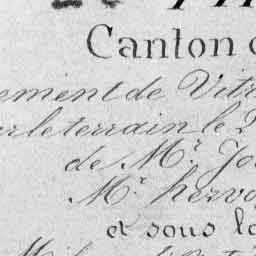 Canton
ement de Vitr
arle terrain le
de Mr. Jo
Mr. hervo
et sous la